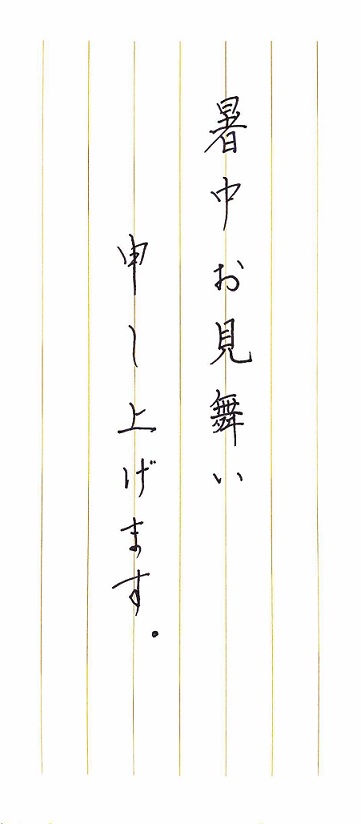 暑中お見舞い
申し上げます。